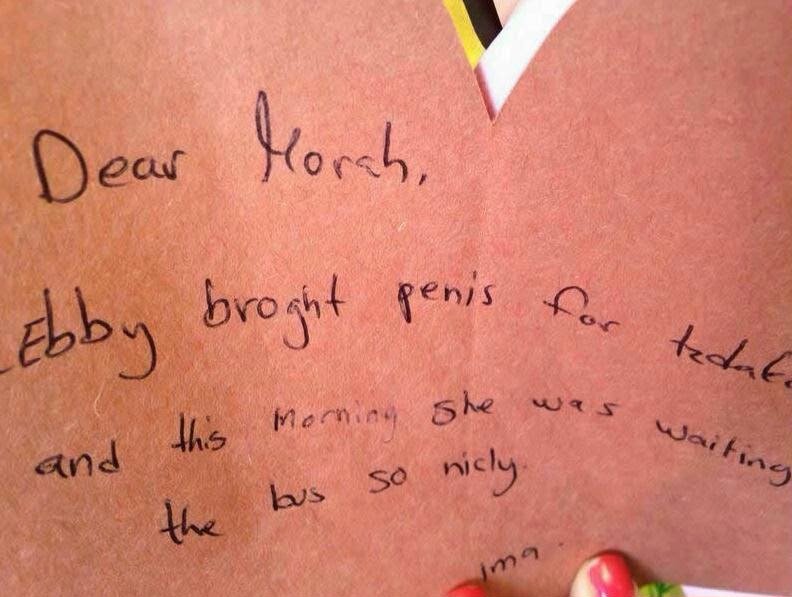 Dear Morah,
Ebby broght penis for
and this morning she was waiting
the bus so nicly.
ima